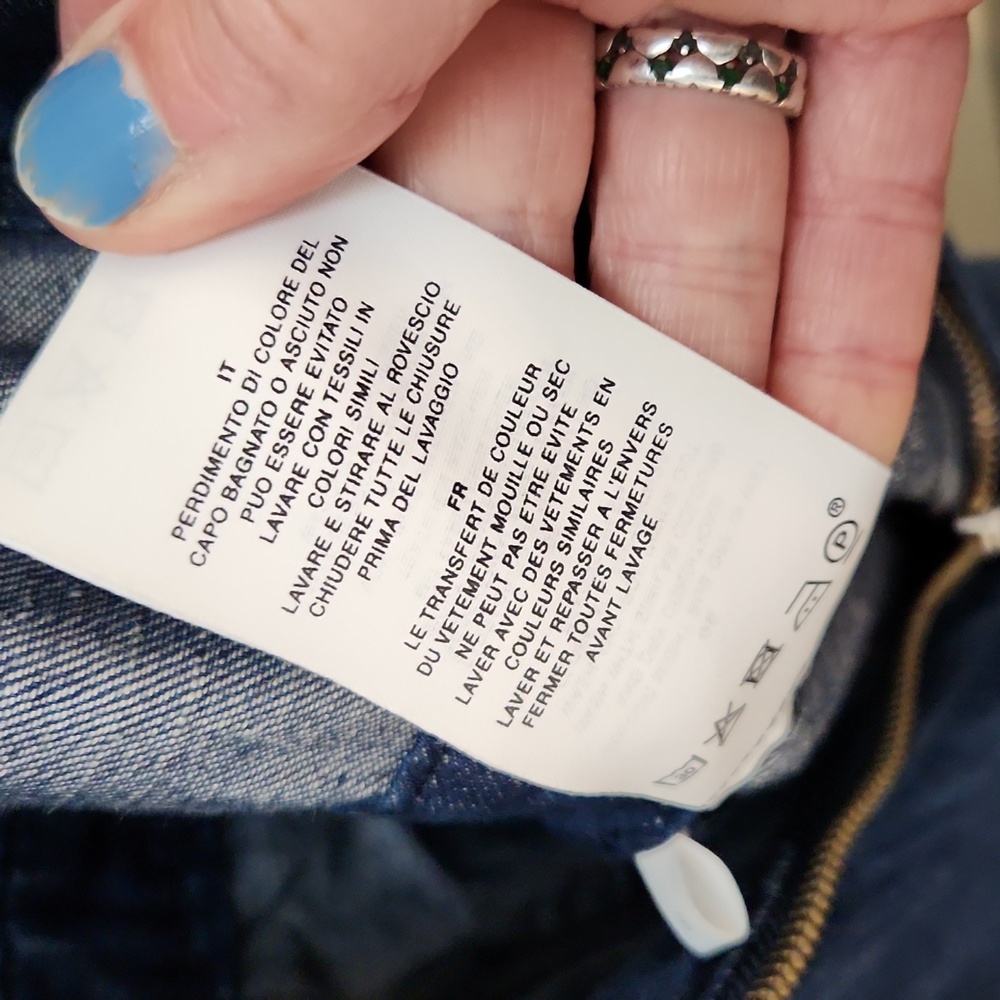 IT
PERDIMENTO DI COLORE DEL
CAPO BAGNATO O ASCIUTO NON
PUO ESSERE EVITATO
LAVARE CON TESSILI IN
COLORI SIMILI
LAVARE E STIRARE AL ROVESCIO
CHIUDERE TUTTE LE CHIUSURE
PRIMA DEL LAVAGGIO
FR
LE TRANSFERT DE COULEUR
DU VETEMENT MOUILLE OU SEC
NE PEUT PAS ETRE EVITE
LAVER AVEC DES VETEMENTS EN
COULEURS SIMILAIRES
LAVER ET REPASSER A L'ENVERS
FERMER TOUTES FERMETURES
AVANT LAVAGE
P®